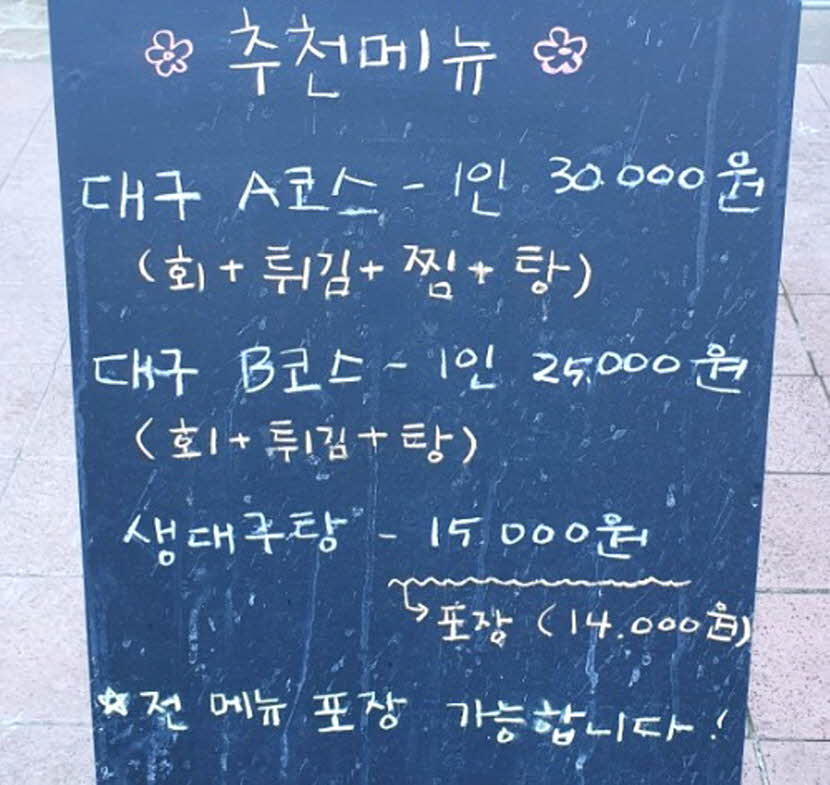 추천메뉴
대구 A코스 - 1인 30.000원
(회 + 튀김 + 찜 + 탕)
대구 B코스 - 1인 25,000원
(회 + 튀김 + 탕)
생대구탕 - 15.000원
↳ 포장 (14.000원)
☆ 전 메뉴 포장 가능합니다!